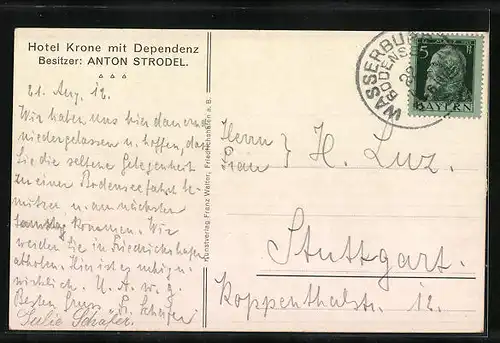 Hotel Krone mit Dependenz
Besitzer: ANTON STRODEL.
21. Aug. 12.
Wir haben uns hier dauernd
niedergelassen u. hoffen, daß
Sie die seltene Gelegenheit
zu einer Bodenseefahrt be-
nützen u. am nächsten
Samstag kommen. Wir
werden Sie in Friedrichshafen
abholen. Hier ist es ruhig u.
wirklich. U. A. w. g.
Besten Gruss Fr. Schäfer
Julie Schäfer.
Kunstverlag Franz Walter, Friedrichshafen a. B.
WASSERBU
BODENS
5
BAYERN
Herrn
Frau
H. Luz.
Stuttgart.
Koppenthalstr. 12.